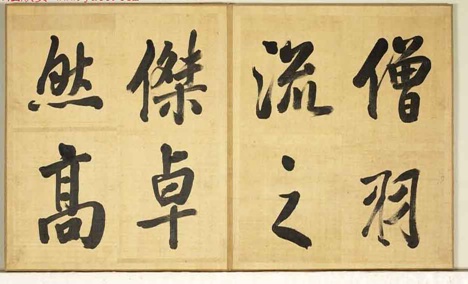 僧羽
流之
傑卓
然高